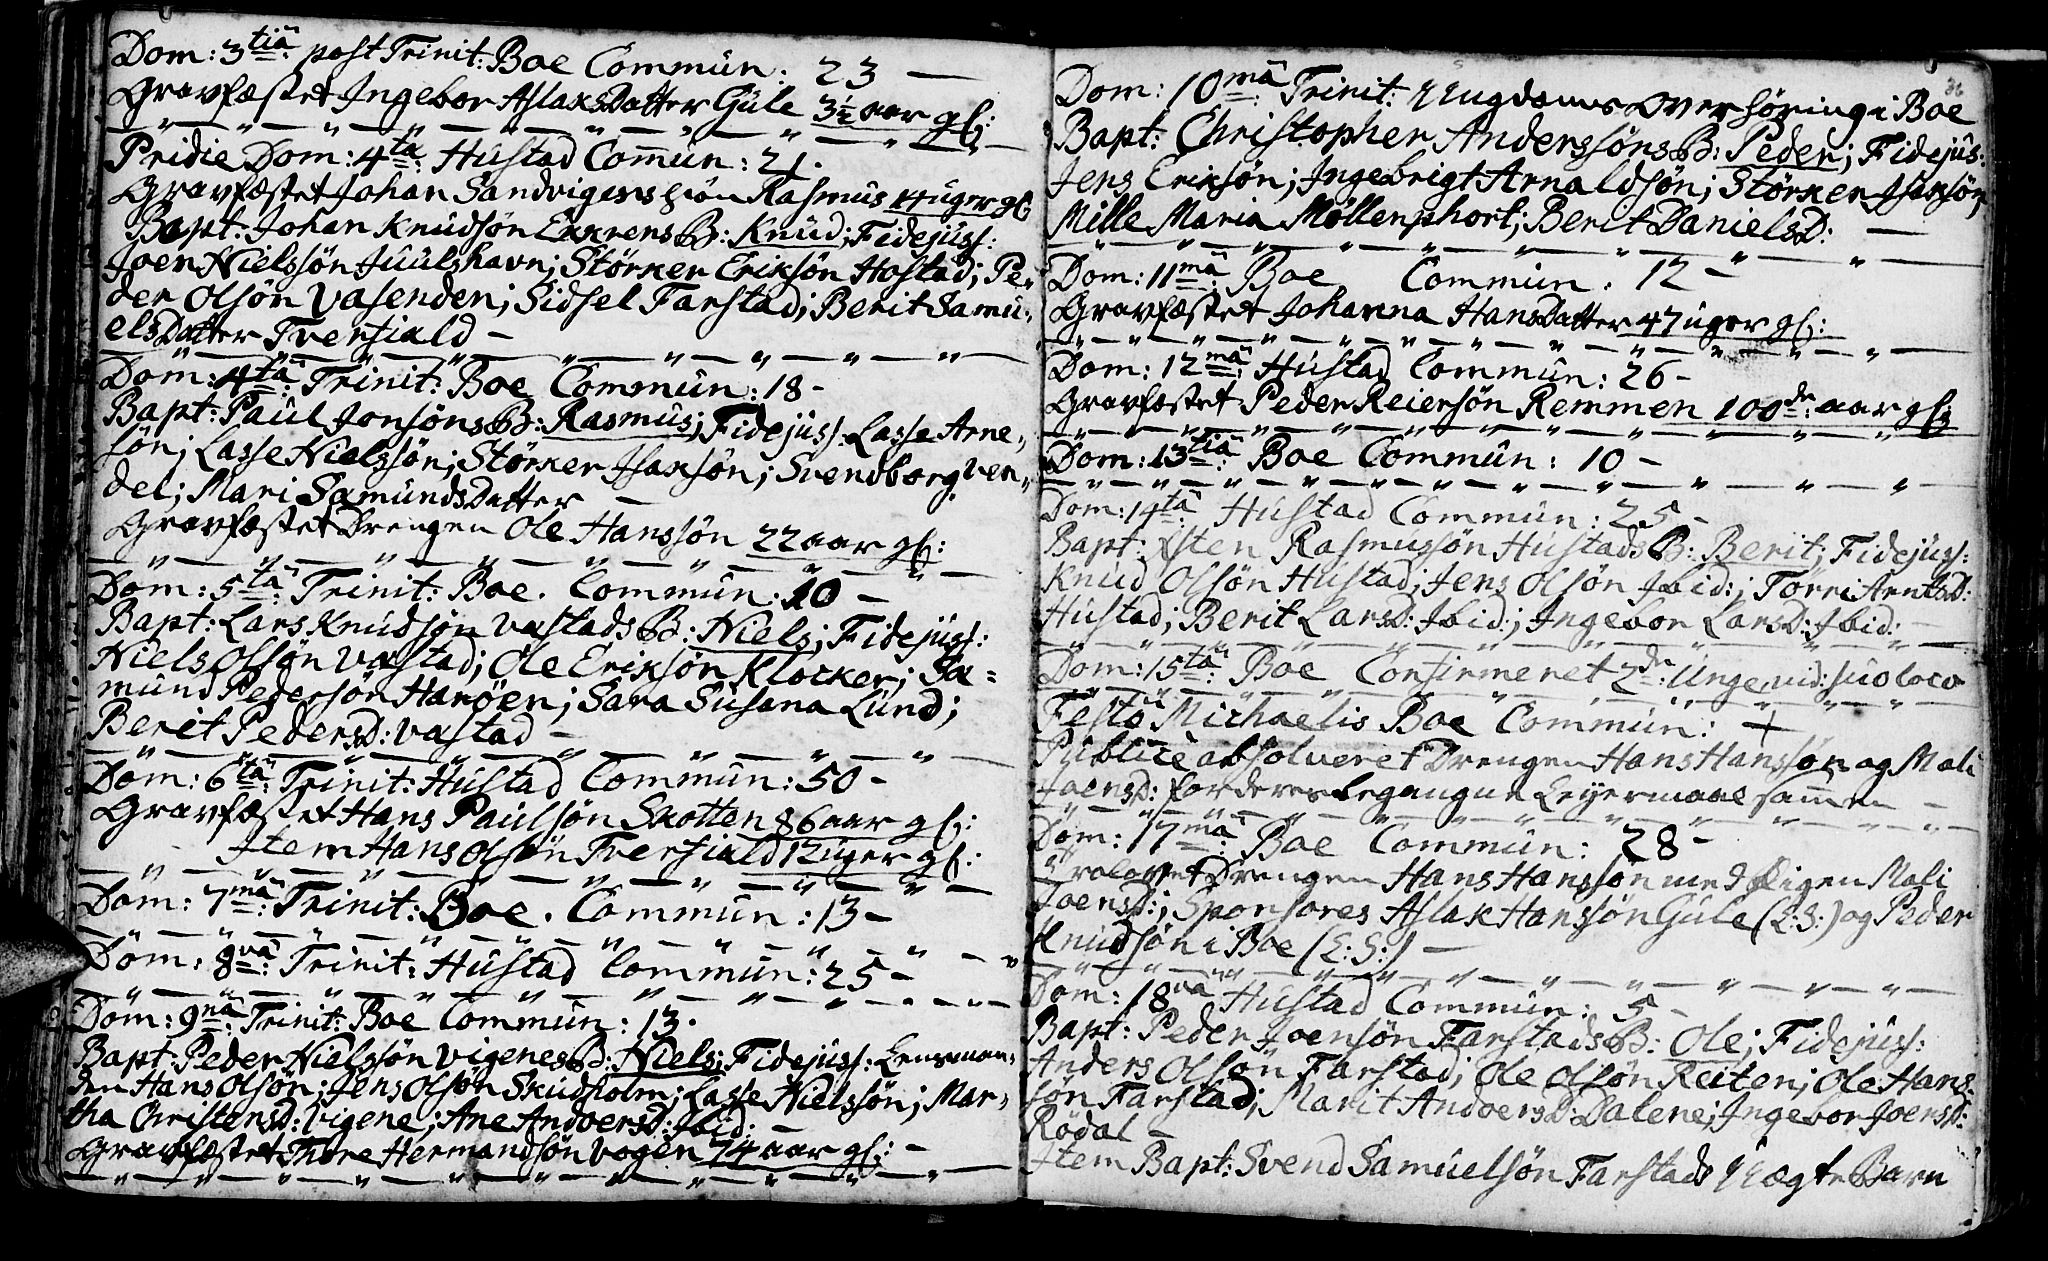 Dom: 3tiâ post Trinit: Boe Commûn: 23 —
Gravfæstet Ingebor AslaksDatter Gûle 3½ aar gl:
Pridie Dom: 4tâ: Hûstad Com̄ûn: 21.
Gravfæstet Johan Sandvigens søn Rasmus 14 uger gl:
Bapt: Johan Knûdsøn Ekkrens B: Knûd; Fidejûss:
Joen Nielssøn Juûlshavn; Størker Eriksøn Hostad; Pe,,
der Olsøn Vasenden; Sidsel Farstad; Berit Samû,,
elsDatter Tverfiald —
Dom: 4tâ: Trinit: Boe Commûn: 18 -
Bapt: Paûl Jonsøns B: Rasmûs; Fidejûss: Lasse Arne,,
søn; Lasse Nielssøn; Størker Isaksøn; Svendborg Ven,,
del; Mari SamûndsDatter —
Gravfæstet Drengen Ole Hanssøn 22 aar gl:
Dom: 5tâ: Trinit: Boe. Commûn: 10 —
Bapt: Lars Knûdsøn Vastads B: Niels; Fidejûss:
Niels Olsøn Vastad; Ole Eriksøn Klocker; Sa=
mûnd Pedersøn Harøen; Sara Sûsana Lûnd;
Berit PedersD: Vastad —
Dom: 6tâ: Trinit: Hûstad Commûn: 50 -
Gravfæstet Hans Paûlsøn Skotten 86 aar gl:
Item Hans Olsøn Tverfiald 12 uger gl:
Dom: 7mâ: Trinit: Boe. Commûn: 13 -
Dom: 8vâ: Trinit: Hûstad Commûn: 25 -
Dom: 9nâ: Trinit: Boe Commûn: 13.
Bapt: Peder Nielssøn Vigenes B: Niels; Fidejûss: Lensman,,
den Hans Olsøn; Jens Olsøn Skûdholm; Lasse Nielssøn; Mar,,
tha ChristensD: Vigene; Ane AndersD: Ibid: —
Gravfæstet Thore Hermandsøn Vogen 74 aar gl: -
36
Dom: 10mâ: Trinit: Ungdomes Overhøring i Boe
Bapt: Christopher Anderssøns B: Peder; Fidejûs:
Jens Eriksøn; Ingebrigt Arnaldsøn; Størker Isaksøn
Mille Maria Møllerphort; Berit DanielsD: —
Dom: 11mâ: Boe Commûn: 12 -
Gravfæstet Johanna HansDatter 47 uger gl:
Dom: 12mâ: Hûstad Commûn: 26 -
Gravfæstet Peder Reiersøn Remmen 100de aar gl:
Dom: 13tiâ: Boe Commûn: 10 -
Dom: 14tâ: Hûstad Commûn: 25 -
Bapt: Østen Rasmussøn Hûstads B: Berit; Fidejûss:
Knûd Olsøn Hûstad; Jens Olsøn Ibid:; Torri ArntsD:
Hûstad; Berit LarsD: Ibid:; Ingebor LarsD: Ibid: —
Dom: 15tâ: Boe Confirmeret 2de Unge vid: suo loco
Festo Michaelis Boe Commûn: +
Publice absolveret Drengen Hans Hanssøn og Mali
JoensD: for deres begangne Leyermaal sam̄en —
Dom: 17mâ: Boe Commûn: 28 -
Trolovet Drengen Hans Hanssøn med Pigen Mali
JoensD:; Sponsores Aslak Hanssøn Gûle (L:S:) og Peder
Knûdsøn i Boe (L:S:) —
Dom: 18vâ Hûstad Commûn: 5 -
Bapt: Peder Joensøn Farstads B: Ole; Fidejûss:
Anders Olsøn Farstad; Ole Olsøn Reiten; Ole Hans
søn Farstad; Marit AndersD: Dalene; Ingebor JoensD:
Rødal —
Item Bapt: Svend Samûelsøn Farstads Uægte Barn